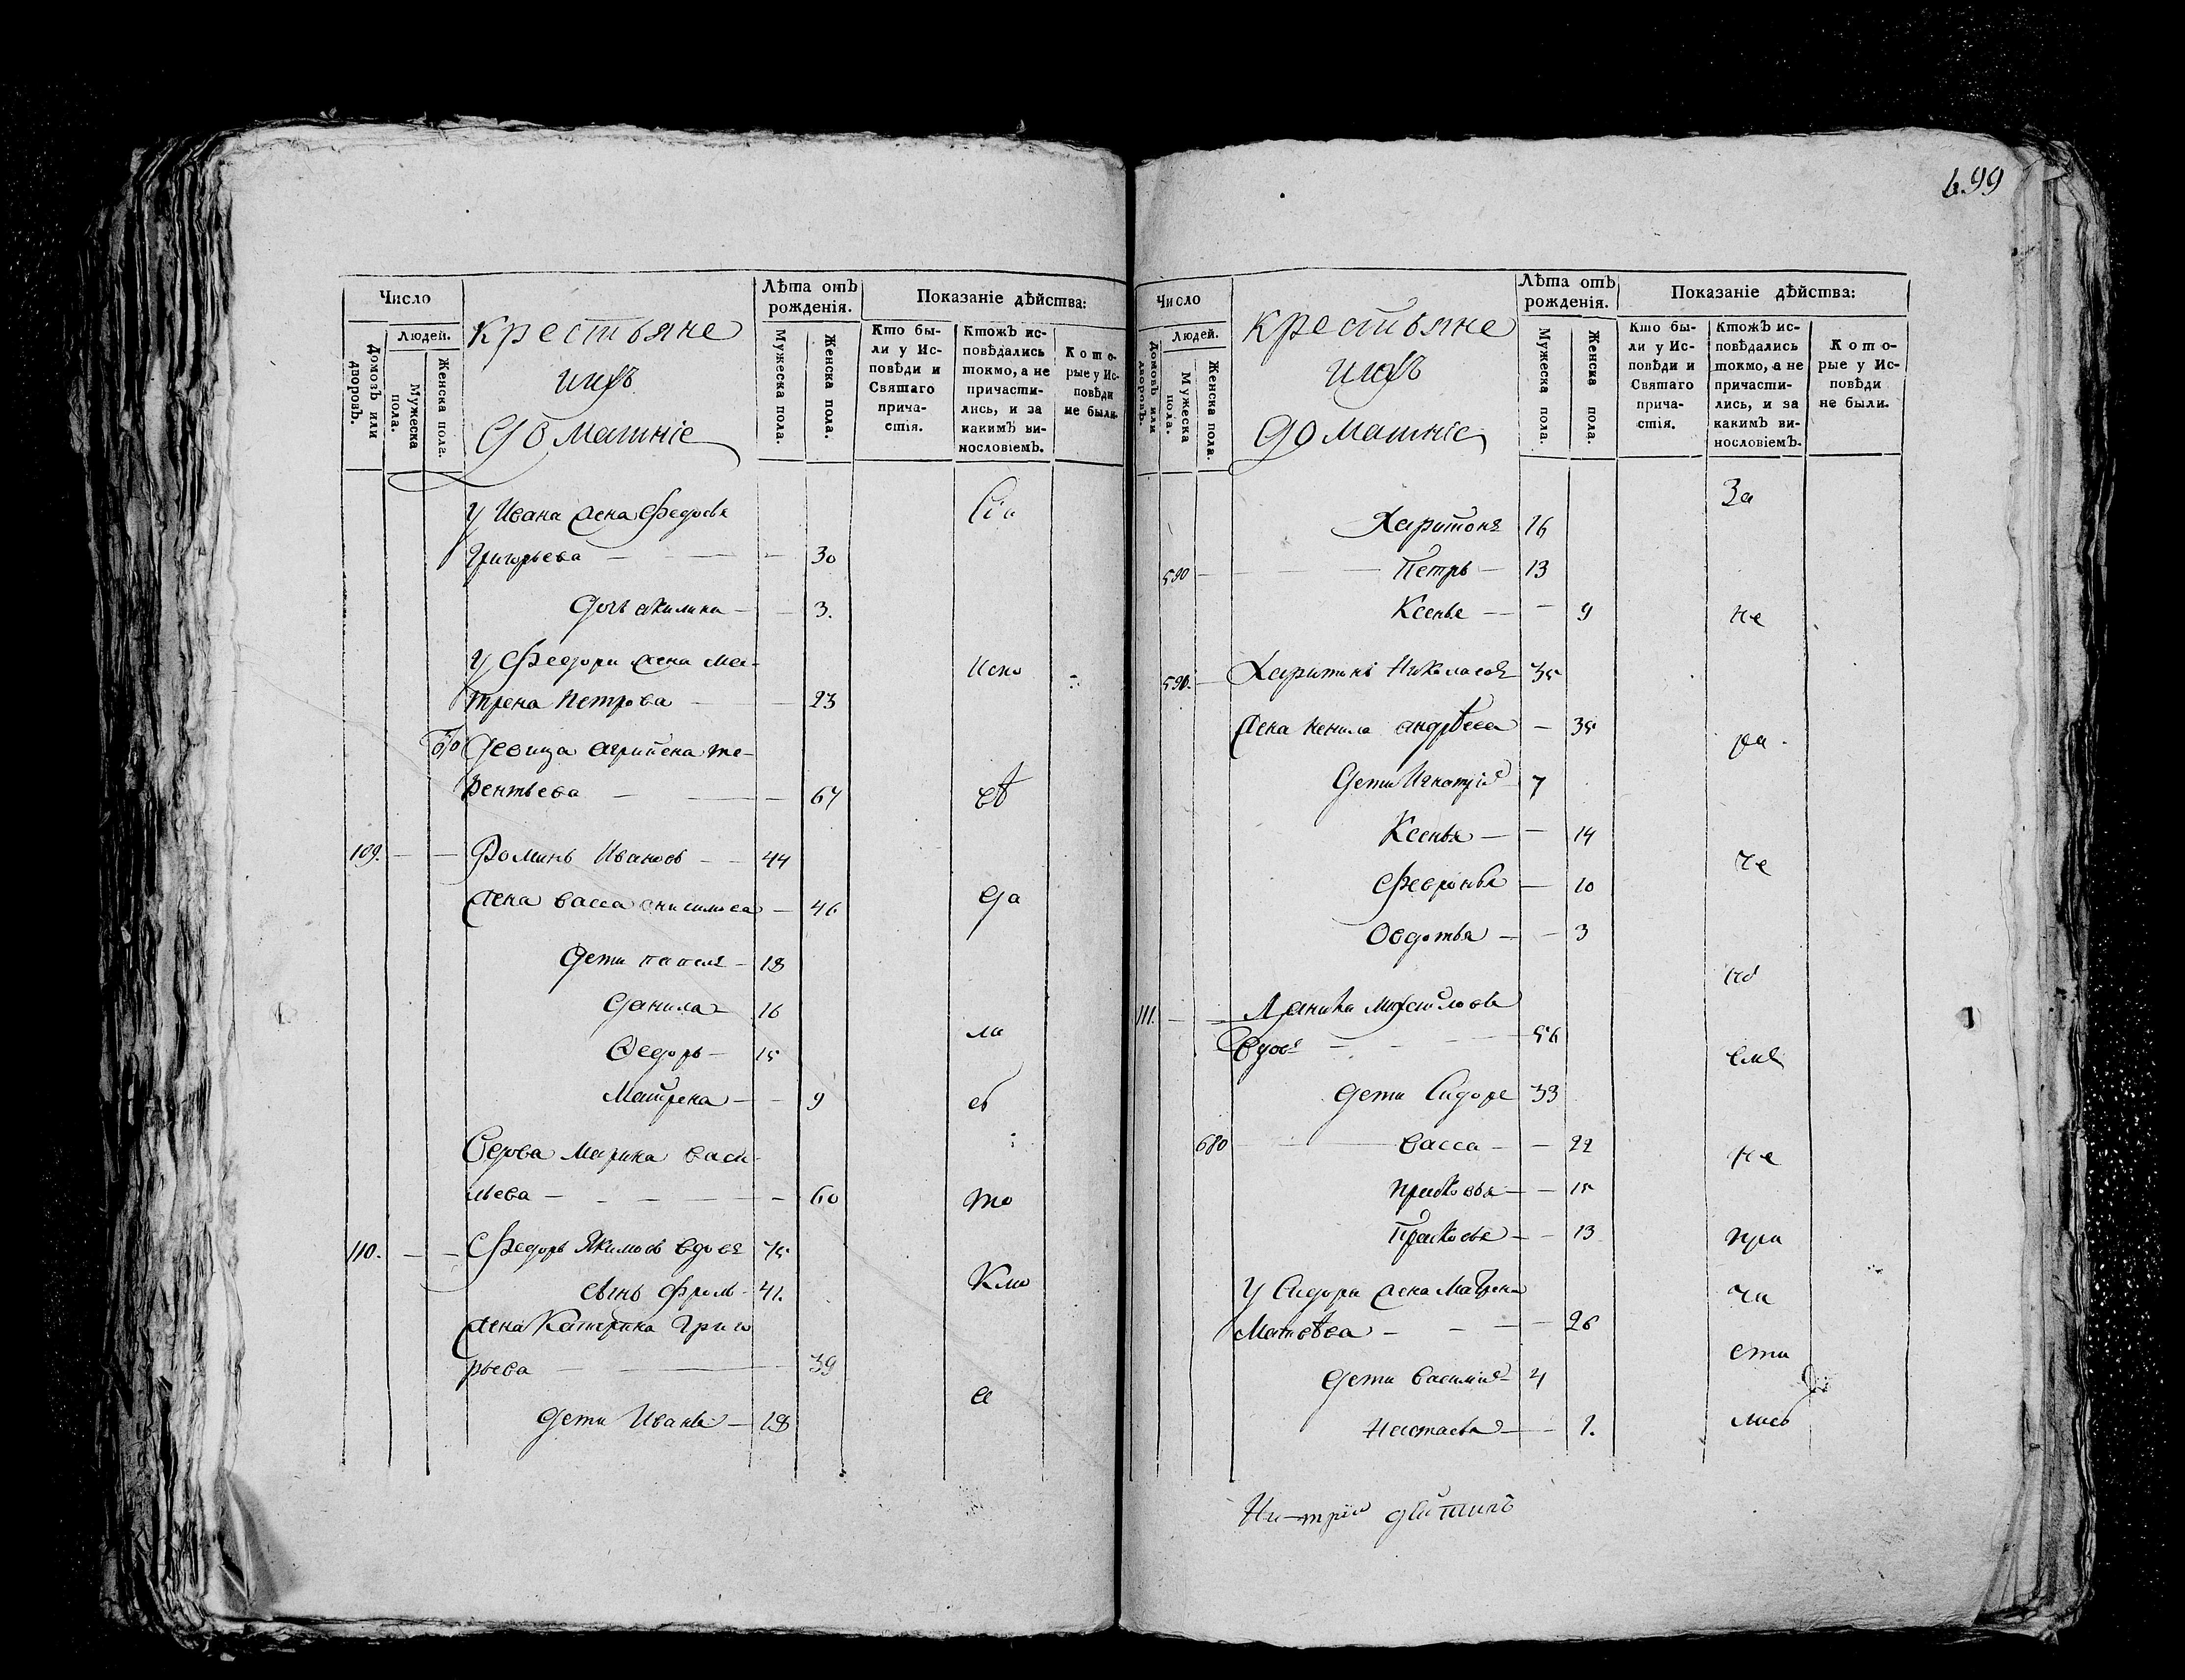 499
Число
Людей.
Домовъ или дворовъ.
Мужеска пола.
Женска пола.
крестьяне
ихъ
домашніе
Лѣта отъ рожденія.
Мужеска пола.
Женска пола.
Показаніе дѣйства:
Кто были у Исповѣди и Святаго причастія.
Ктожъ исповѣдались токмо, а не причастились, и за какимъ винословіемъ.
Которые у Исповѣди не были.
у Ивана жена Федосья
Григорьева — 30
Сіи
дочь акилина — 3.
у Федора жена Ма-
трена Петрова — 23
испо
девица агрипена те-
рентьева — 67
вѣ
109. Фоминъ Ивановъ — 44
жена васса анисимова — 46
да
дети — 18
данила — 16
ли
Федоръ — 15
Матрена — 9
сь
Вдова Марина васи-
льева — 60
то
110. Федоръ Якимовъ вдовъ 75
сынъ Фролъ — 41.
кмо
жена Катерина Григо
рьева — 39
а
дети Иванъ — 18
Число
Людей.
Домовъ или дворовъ.
Мужеска пола.
Женска пола.
крестьяне
ихъ
домашніе
Лѣта отъ рожденія.
Мужеска пола.
Женска пола.
Показаніе дѣйства:
Кто были у Исповѣди и Святаго причастія.
Ктожъ исповѣдались токмо, а не причастились, и за какимъ винословіемъ.
Которые у Исповѣди не были.
За
Харитонъ 16
590 — Петръ — 13
Ксенья — 9
не
Харитонъ Николаевъ 35
жена ненила андрѣева — 35
ра
дети Игнатій 7
Ксенья — 14
че
Февронья — 10
Овдотья — 3
ні
111. Данила Михаиловъ
Вдовъ — 56
емъ
дети Сидоръ 33
680 — васса — 22
не
прасковья — 15
Прасковья — 13
при
у Сидора жена Матрена
ча
Матвѣева — 26
сти
дети василий 4
Настасья — 1.
лись